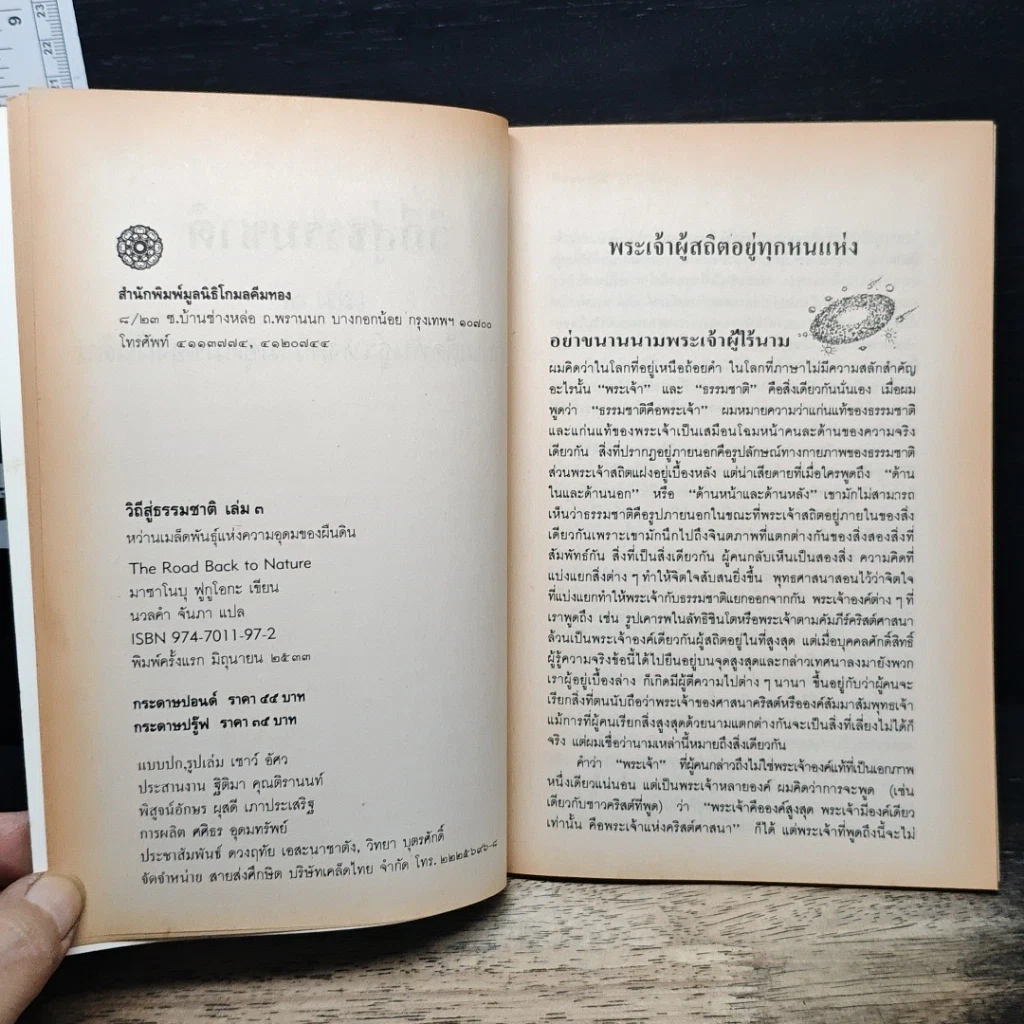 9
23
22
21
สำนักพิมพ์มูลนิธิโกมลคีมทอง
๘/๒๓ ซ.บ้านช่างหล่อ ถ.พรานนก บางกอกน้อย กรุงเทพฯ ๑๐๗๐๐
โทรศัพท์ ๔๑๑๓๗๗๔, ๔๑๒๐๗๔๔
วิถีสู่ธรรมชาติ เล่ม ๓
หว่านเมล็ดพันธุ์แห่งความอุดมของผืนดิน
The Road Back to Nature
มาซาโนบุ ฟูกูโอกะ เขียน
นวลคำ จันภา แปล
ISBN 974-7011-97-2
พิมพ์ครั้งแรก มิถุนายน ๒๕๓๓
กระดาษปอนด์ ราคา ๕๕ บาท
กระดาษปรู๊ฟ ราคา ๓๕ บาท
แบบปก,รูปเล่ม เซาว์ อัศว
ประสานงาน ฐิติมา คุณติรานนท์
พิสูจน์อักษร ผุสดี เภาประเสริฐ
การผลิต ศศิธร อุดมทรัพย์
ประชาสัมพันธ์ ดวงฤทัย เอสะนาชาตัง, วิทยา บุตรศักดิ์
จัดจำหน่าย สายส่งศึกษิต บริษัทเคล็ดไทย จำกัด โทร. ๒๒๒๕๖๙๖-๘
พระเจ้าผู้สถิตอยู่ทุกหนแห่ง
อย่าขนานนามพระเจ้าผู้ไร้นาม
ผมคิดว่าในโลกที่อยู่เหนือถ้อยคำ ในโลกที่ภาษาไม่มีความสลักสำคัญ
อะไรนั้น “พระเจ้า” และ “ธรรมชาติ” คือสิ่งเดียวกันนั่นเอง เมื่อผม
พูดว่า “ธรรมชาติคือพระเจ้า” ผมหมายความว่าแก่นแท้ของธรรมชาติ
และแก่นแท้ของพระเจ้าเป็นเสมือนโฉมหน้าคนละด้านของความจริง
เดียวกัน สิ่งที่ปรากฏอยู่ภายนอกคือรูปลักษณ์ทางกายภาพของธรรมชาติ
ส่วนพระเจ้าสถิตแฝงอยู่เบื้องหลัง แต่น่าเสียดายที่เมื่อใครพูดถึง “ด้าน
ในและด้านนอก” หรือ “ด้านหน้าและด้านหลัง” เขามักไม่สามารถ
เห็นว่าธรรมชาติคือรูปภายนอกในขณะที่พระเจ้าสถิตอยู่ภายในของสิ่ง
เดียวกันเพราะเขามักนึกไปถึงจินตภาพที่แตกต่างกันของสิ่งสองสิ่งที่
สัมพัทธ์กัน สิ่งที่เป็นสิ่งเดียวกัน ผู้คนกลับเห็นเป็นสองสิ่ง ความคิดที่
แบ่งแยกสิ่งต่าง ๆ ทำให้จิตใจสับสนยิ่งขึ้น พุทธศาสนาสอนไว้ว่าจิตใจ
ที่แบ่งแยกทำให้พระเจ้ากับธรรมชาติแยกออกจากกัน พระเจ้าองค์ต่าง ๆ ที่
เราพูดถึง เช่น รูปเคารพในลัทธิชินโตหรือพระเจ้าตามคัมภีร์คริสต์ศาสนา
ล้วนเป็นพระเจ้าองค์เดียวกันผู้สถิตอยู่ในที่สูงสุด แต่เมื่อบุคคลศักดิ์สิทธิ์
ผู้รู้ความจริงข้อนี้ได้ไปยืนอยู่บนจุดสูงสุดและกล่าวเทศนาลงมายังพวก
เราผู้อยู่เบื้องล่าง ก็เกิดมีผู้ตีความไปต่าง ๆ นานา ขึ้นอยู่กับว่าผู้คนจะ
เรียกสิ่งที่ตนนับถือว่าพระเจ้าของศาสนาคริสต์หรือองค์สัมมาสัมพุทธเจ้า
แม้การที่ผู้คนเรียกสิ่งสูงสุดด้วยนามแตกต่างกันจะเป็นสิ่งที่เลี่ยงไม่ได้ก็
จริง แต่ผมเชื่อว่านามเหล่านี้หมายถึงสิ่งเดียวกัน
คำว่า “พระเจ้า” ที่ผู้คนกล่าวถึงไม่ใช่พระเจ้าองค์แท้ที่เป็นเอกภาพ
หนึ่งเดียวแน่นอน แต่เป็นพระเจ้าหลายองค์ ผมคิดว่าการจะพูด (เช่น
เดียวกับชาวคริสต์ที่พูด) ว่า “พระเจ้าคือองค์สูงสุด พระเจ้ามีองค์เดียว
เท่านั้น คือพระเจ้าแห่งคริสต์ศาสนา” ก็ได้ แต่พระเจ้าที่พูดถึงนี้จะไม่